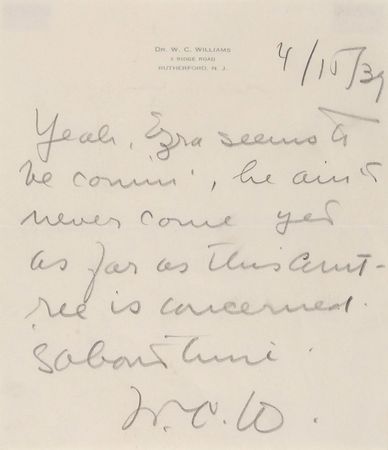 DR. W. C. WILLIAMS
9 RIDGE ROAD
RUTHERFORD, N. J.
4/15/39
Yeah, Ezra seems to
be comin', he ain't
never come yet
as far as this cunt-
ree is concerned.
S'about time.
W. C. W.